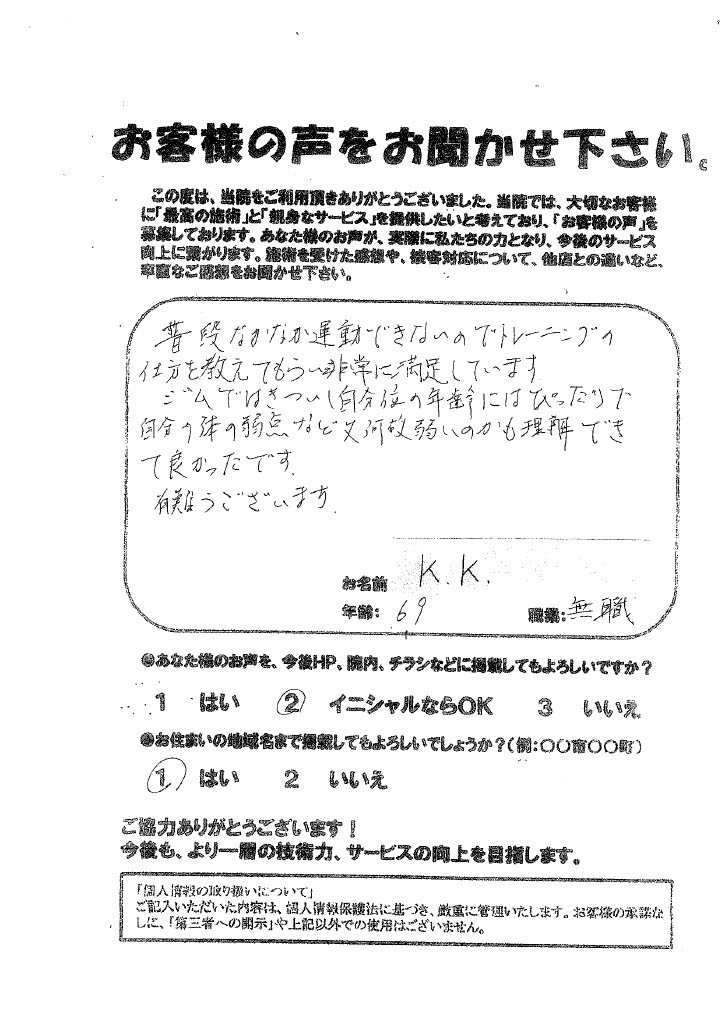 お客様の声をお聞かせ下さい。
この度は、当院をご利用頂きありがとうございました。当院では、大切なお客様
に「最高の施術」と「親身なサービス」を提供したいと考えており、「お客様の声」を
募集しております。あなた様のお声が、実際に私たちの力となり、今後のサービス
向上に繋がります。施術を受けた感想や、接客対応について、他店との違いなど、
率直なご感想をお聞かせ下さい。
普段なかなか運動ができないのでトレーニングの
仕方を教えてもらい非常に満足しています
ジムではきついし自分位の年齢にはぴったりで
自分の体の弱点など又何故弱いのかも理解でき
て良かったです.
有難うございます.
お名前 K.K.
年齢: 69 職業: 無職
●あなた様のお声を、今後HP、院内、チラシなどに掲載してもよろしいですか？
1 はい 2 イニシャルならOK 3 いいえ
●お住まいの地域名まで掲載してもよろしいでしょうか？(例：〇〇市〇〇町)
1 はい 2 いいえ
ご協力ありがとうございます！
今後も、より一層の技術力、サービスの向上を目指します。
「個人情報の取り扱いについて」
ご記入いただいた内容は、個人情報保護法に基づき、厳重に管理いたします。お客様の承諾な
しに、「第三者への開示」や上記以外での使用はございません。